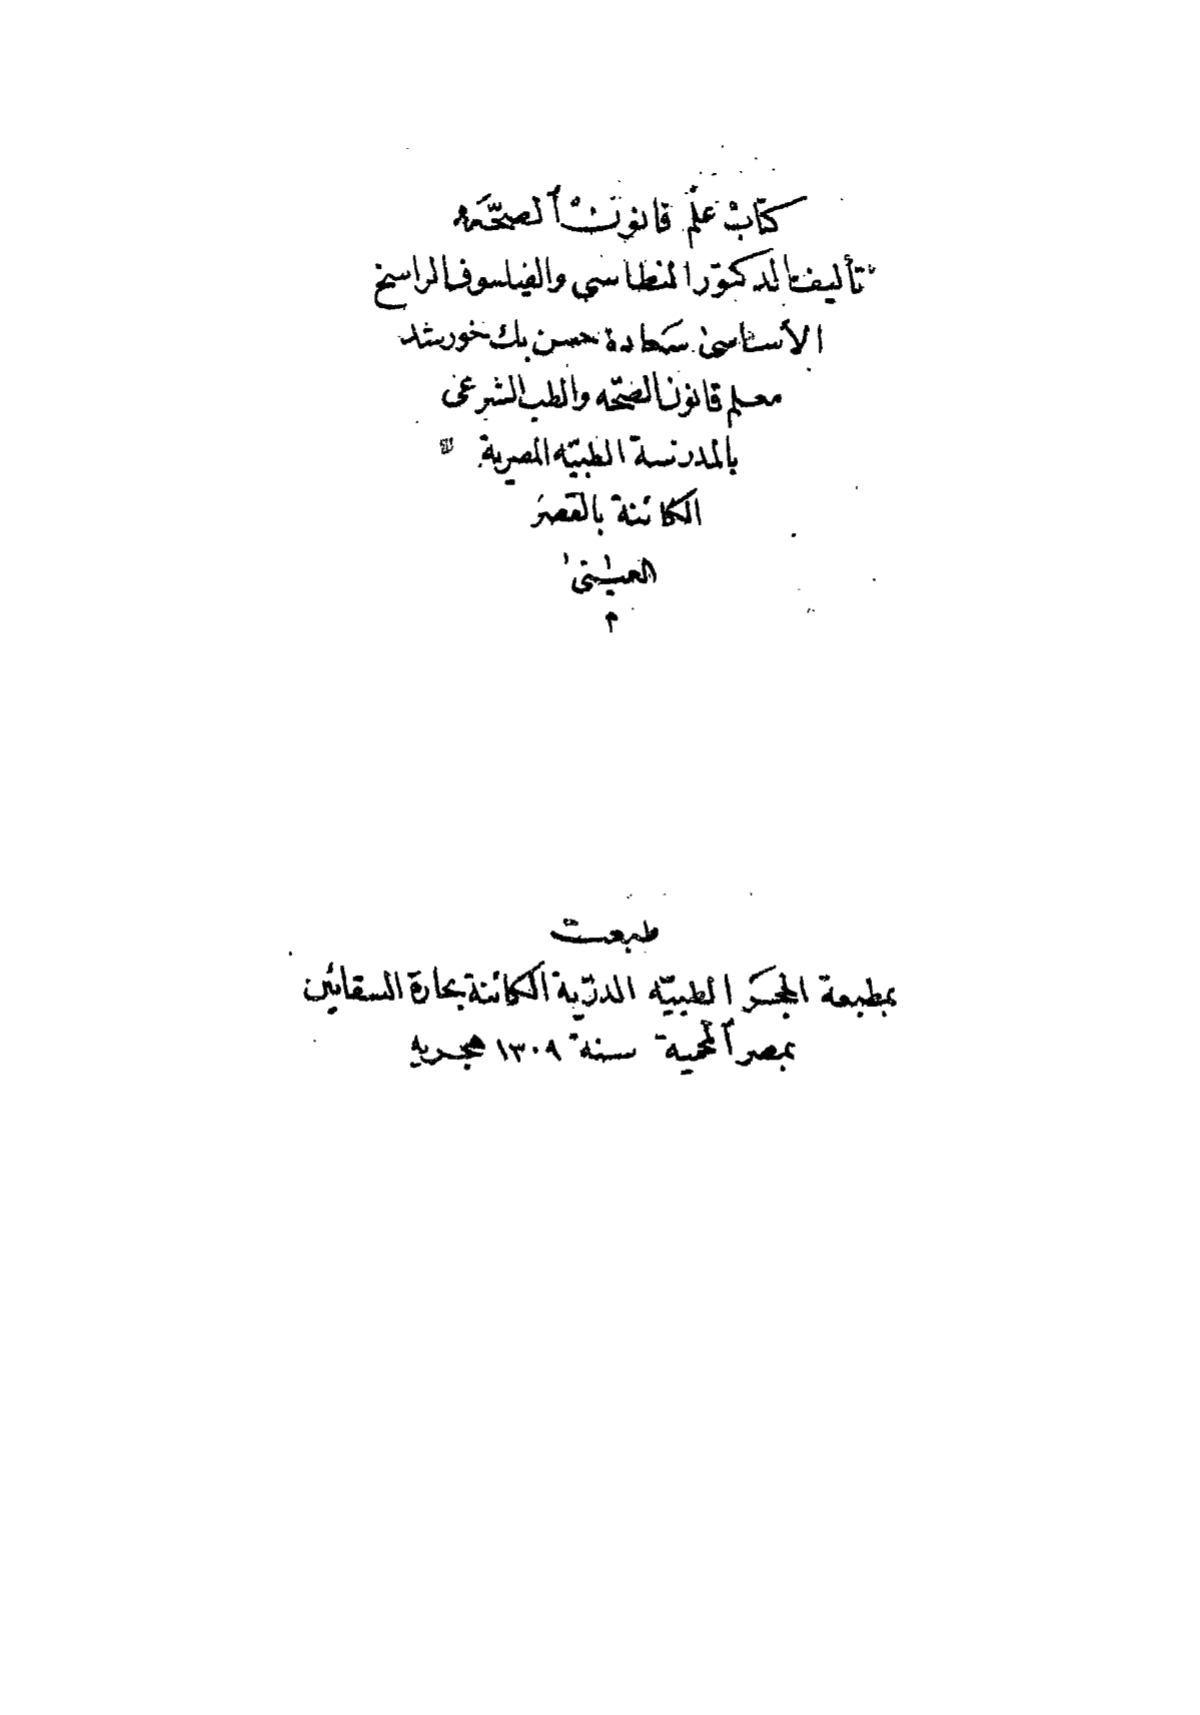 كتاب علم قانون الصحة
تأليف الدكتور النطاسي والفيلسوف الراسخ
الأساسى سعادة حسن بك خورشد
معلم قانون الصحه والطب الشرعى
بالمدرسة الطبيه المصرية
الكائنة بالقصر
العينى
م
طبعت
بمطبعة الحجر الطبيه الدرية الكائنة بحارة السقائين
بمصر المحمية سنة ١٣٠٩ هجريه